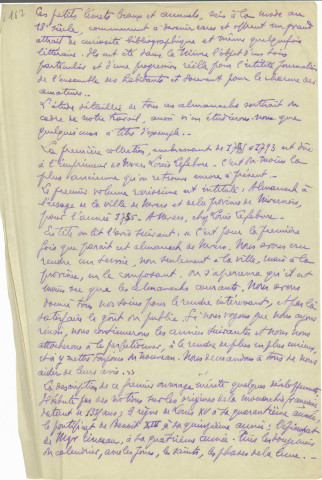 162
Ces petits livrets locaux et annuels, mis à la mode au
18e siècle, commencent à devenir rares et offrent un grand
attrait de curiosité bibliographique et même quelquefois
littéraire. Ils ont été dans le même l'objet d'un soin
particulier et d'une progression réelle pour l'intérêt journalier
de l'ensemble des habitants et souvent pour le charme des
amateurs.
L'étude détaillée de tous ces almanachs sortirait du
cadre de notre travail, aussi n'en étudierons-nous que
quelques-uns à titre d'exemple.
La première collection, embrassant de à 1793 est due
à l'imprimeur de Nevers, Louis Lefebvre. C'est du moins la
plus ancienne qu'on retrouve encore à présent.
Le premier volume rarissime est intitulé: Almanach à
l'usage de la ville de Nevers et de la province de Nivernois,
pour l'année 1755. A Nevers, chez Louis Lefebvre.
En tête on lit l'avis suivant: « C'est pour la première
fois que paraît cet almanach de Nevers. Nous avons cru
rendre un service, non seulement à la ville, mais à la
province, en le composant. On s'apercevra qu'il est
moins sec que les almanachs courants. Nous avons
donné tous nos soins pour le rendre intéressant, et par là
satisfaire le goût du public. Si nous voyons que nous ayons
réussi, nous continuerons les années suivantes et nous nous
attacherons à le perfectionner, à le rendre de plus en plus curieux,
et à y mettre toujours du nouveau. Nous demandons à tous de nous
aider de leurs avis. »
La description de ce premier ouvrage mérite quelques développements.
Il débute par des notions sur les origines de la monarchie française
datant de 1334 ans; le règne de Louis XV à sa quarantième année;
le pontificat de Benoit XIV à sa quinzième année; l'épiscopat
de Mgr Tinseau, à sa quatrième année. Puis les douze mois
du calendrier, avec les jours, les saints, les phases de la lune. —